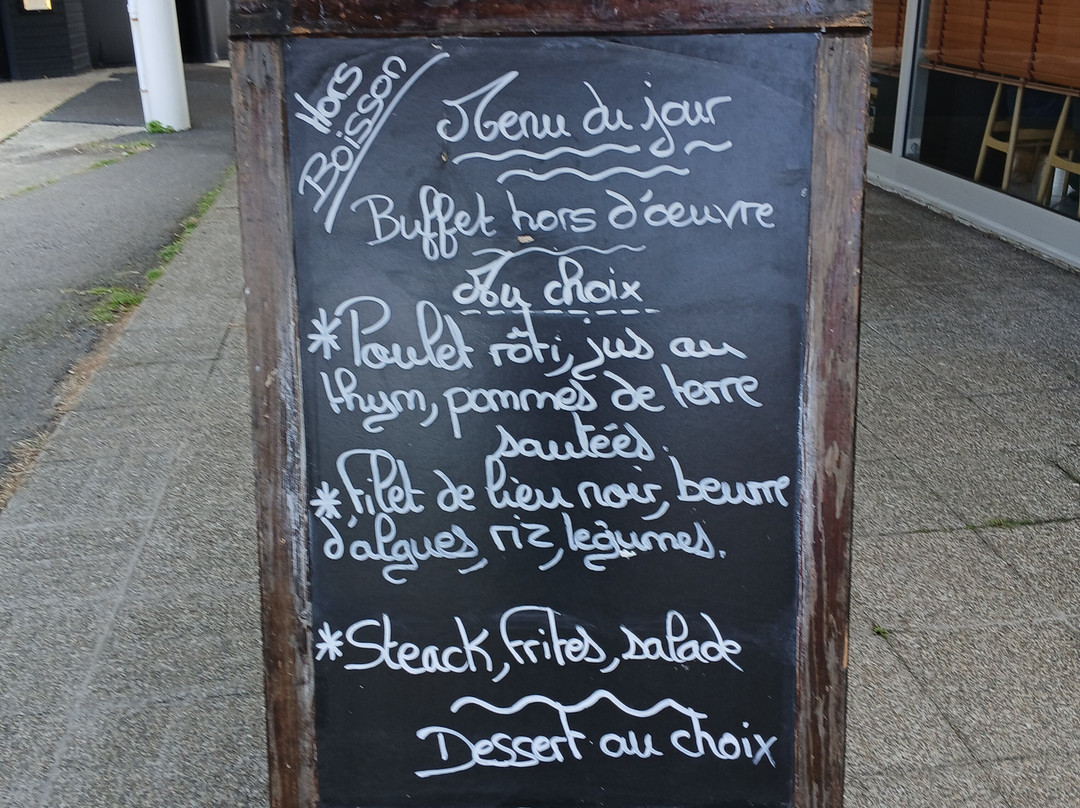 Hors
Boisson
Menu du jour
Buffet hors d'œuvre
Au choix
*Poulet rôti, jus au
thym, pommes de terre
sautées.
*Filet de lieu noir, beurre
d'algues, riz, légumes.
*Steack, frites, salade
Dessert au choix